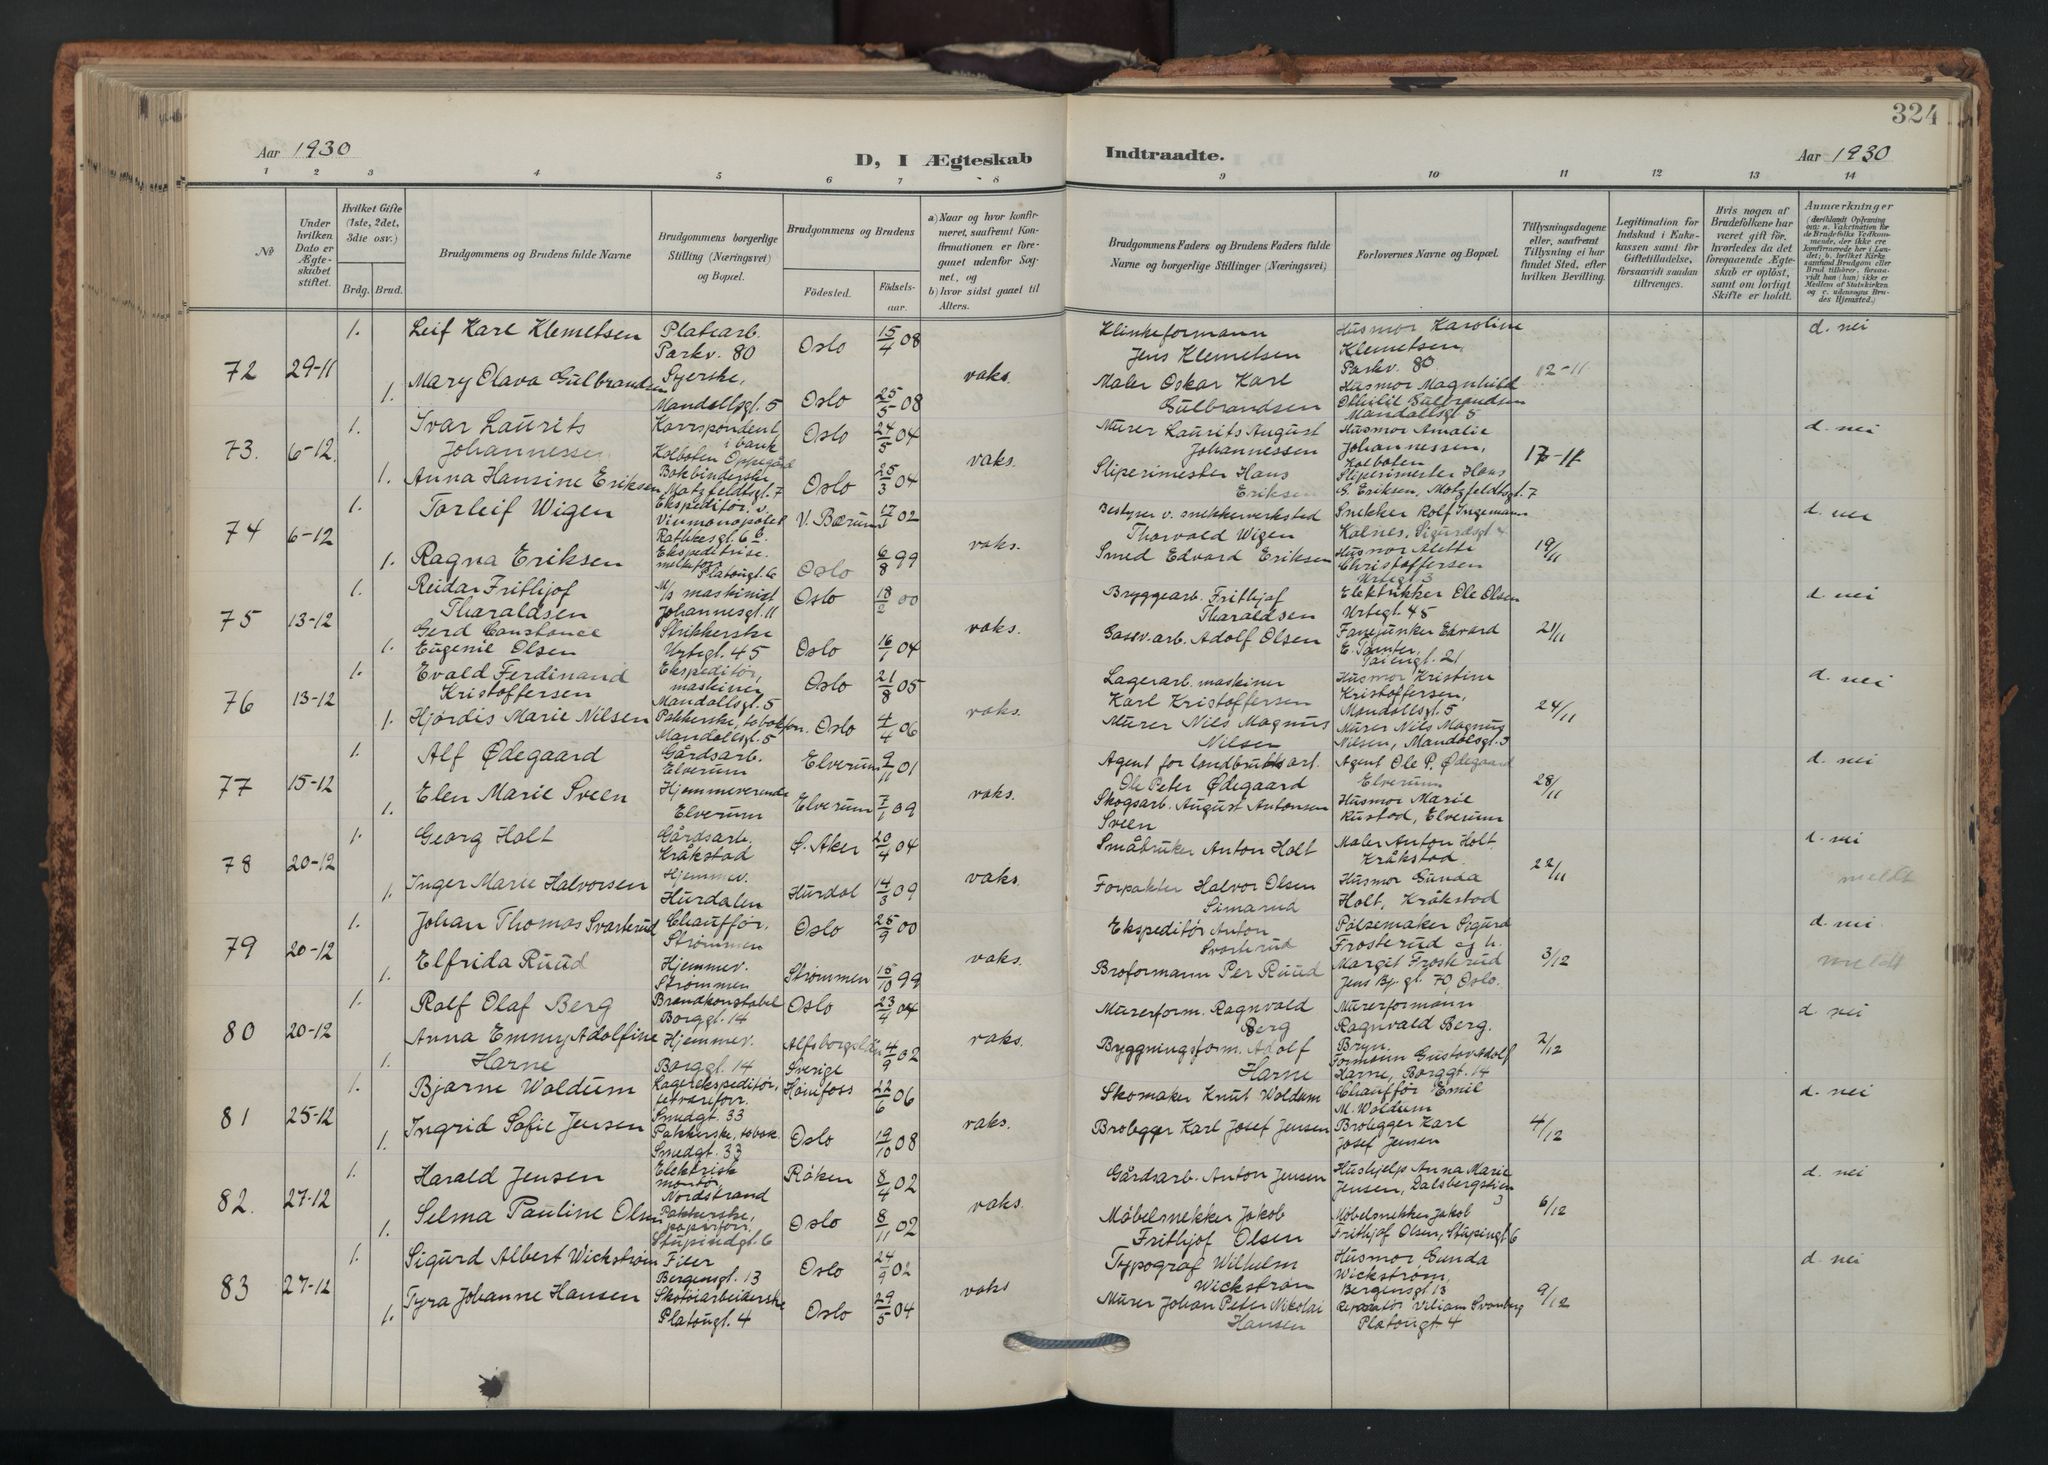 324
Aar 1930
D, I Ægteskab
Indtraadte.
Aar 1930
1 2 3 4 5 6 7 8 9 10 11 12 13 14
№
Under hvilken Dato er Ægteskabet stiftet.
Hvilket Gifte (1ste, 2det, 3die osv.)
Brdg. Brud.
Brudgommens og Brudens fulde Navne
Brudgommens borgerlige Stilling (Næringsvei) og Bopæl.
Brudgommens og Brudens
Födested.
Födselsaar.
a) Naar og hvor konfirmeret, saafremt Konfirmationen er foregaaet udenfor Sognet, og
b) hvor sidst gaaet til Alters.
Brudgommens Faders og Brudens Faders fulde Navne og borgerlige Stillinger (Næringsvei)
Forlovernes Navne og Bopæl.
Tillysningsdagene eller, saafremt Tillysning ei har fundet Sted, efter hvilken Bevilling.
Legitimation for Indskud i Enkekassen samt for Giftetilladelse, forsaavidt saadan tiltrænges.
Hvis nogen af Brudefolkene har været gift för, hvorledes da det foregaaende Ægteskab er oplöst, samt om lovligt Skifte er holdt.
Anmærkninger
72 29-11 1. Leif Karl Klemetsen Platearb. Parkv. 80 Oslo 15/4 08 Klinkeformann Jens Klemetsen Husmor Karoline Klemetsen, Parkv. 80 12-11 d. nei
1. Mary Olava Gulbrandsen Syerske, Mandallsgt. 5 Oslo 25/5 08 vaks. Maler Oskar Karl Gulbrandsen Husmor Magnhild Gulbrandsen Mandallsgt. 5
73. 6-12. 1. Ivar Laurits Johannessen Korrspondent i bank Kolboten Oppegård Oslo 24/5 04 Murer Laurits August Johannessen Husmor Amalie Johannessen, Kolboten d. nei
1. Anna Hansine Eriksen Bokbinderske Motzfeldtsgt. 7 Oslo 25/3 04 vaks. Sliperimester Hans Eriksen Sliperimester Hans G. Eriksen, Motzfeldtsgt. 7
74 6-12 1. Torleif Wigen Ekspeditør v. Vinmonopolet Rathkesgt. 6 V. Bærum 17/1 02 Bestyrer v. snekkerverksted Thorvald Wigen Snekker Rolf Ingemann Kalnes, Sigurdsgt 4 19/11 d. nei
1. Ragna Eriksen Ekspeditrise. Platougt. 6 Oslo 6/8 99 vaks. Smed Edvard Eriksen Husmor Alette Christoffersen Urtegt 3
75 13-12 1. Reidar Frithjof Tharaldsen M/s maskinist Johannesgt. 11 Oslo 18/2 00 Bryggearb. Frithjof Tharaldsen Elektrikker Ole Olsen Urtegt. 45 21/11 d. nei
1. Gerd Constance Eugenie Olsen Strikkerske Urtegt. 45 Oslo 16/1 04 vaks. Gasv.arb. Adolf Olsen Fanejunker Edvard E. Tømter, Tøiengt. 21
76 13-12 1. Evald Ferdinand Kristoffersen Ekspeditør, maskiner Mandallsgt. 5 Oslo 21/8 05 Lagerarb. maskiner Karl Kristoffersen Husmor Kristine Kristoffersen, Mandallsgt. 5 24/11 d. nei
1. Hjørdis Marie Nilsen Pakkerske, Mandallsgt. 5 Oslo 4/4 06 vaks. Murer Nils Magnus Nilsen Murer Nils Magnus Nilsen, Mandalsgt. 5
77 15-12 1. Alf Ødegaard Gårdsarb. Elverum Elverum 9/11 01 Agent for landbruksart. Ole Peter Ødegaard Agent Ole P. Ødegaard Elverum 28/11 d. nei
1. Elen Marie Sveen Hjemmeværende Elverum Elverum 7/1 09 vaks. Skogsarb. August Antonsen Sveen Husmor Marie Rustad, Elverum
78 20-12 1. Georg Holt Gårdsarb, Kråkstad Ø. Aker 20/4 04 Småbruker Anton Holt Maler Anton Holt Kråkstad 22/11 d. nei
1. Inger Marie Halvorsen Hjemmev. Hurdalen Hurdal 14/3 09 vaks. Forpakter Halvor Olsen Simarud Husmor Gunda Holt, Kråkstad meldt
79 20-12 1. Johan Thomas Svarterud Chauffør, Strømmen Oslo 25/9 00 Ekspeditør Anton Svarterud Pølsemaker Sigurd Frosterud og h. 3/12 d. nei
1. Elfrida Ruud Hjemmev. Strømmen Strømmen 15/10 99 vaks. Broformann Per Ruud Margit Frosterud Jens Bj. gt. 70, Oslo. meldt
80 20-12 1. Rolf Olaf Berg Brandkonstabel Borggt. 14 Oslo 23/4 04 Murerform. Ragnvald Berg Murerformann Ragnvald Berg. Bryn. 2/12 d. nei
1. Anna Emmy Adolfine Harne Hjemmev. Borggt. 14 Alfsborgslän Sverige 4/9 02 vaks. Byggningsform. Adolf Harne Formann Gustav Adolf Harne, Borggt. 14
81 25-12 1. Bjarne Woldum Lagerekspeditør, Smedgt. 33 Hønefoss 22/6 06 Skomaker Knut Woldum Chauffør Emil M. Woldum 4/12 d. nei
1. Ingrid Sofie Jensen Pakkerske, tobak. Smedgt. 33 Oslo 19/10 08 vaks. Brolegger Karl Josef Jensen Brolegger Karl Josef Jensen
82. 27-12 1. Harald Jensen Elektrisk montør, Nordstrand Røken 8/4 02 Gårdsarb. Anton Jensen Hushjelp Anna Marie Jensen, Dalsbergstien 3 6/12 d. nei
1. Selma Pauline Olsen Pakkerske, papirforr. Stupinngt. 6 Oslo 8/11 02 vaks. Møbelsnekker Jakob Frithjof Olsen Møbelsnekker Jakob Frithjof Olsen, Stupingt 6
83 27-12 1. Sigurd Albert Wickstrøm Filer Bergensgt. 13 Oslo 24/9 02 Typograf Wilhelm Wickstrøm Husmor Gunda Wickstrøm, Bergensgt 13 9/12 d. nei
1. Tyra Johanne Hansen Skotøiarbeiderske Platougt. 4 Oslo 29/5 04 vaks Murer Johan Peter Nikolai Hansen Reparatør Viliam Svanberg Platougt. 4